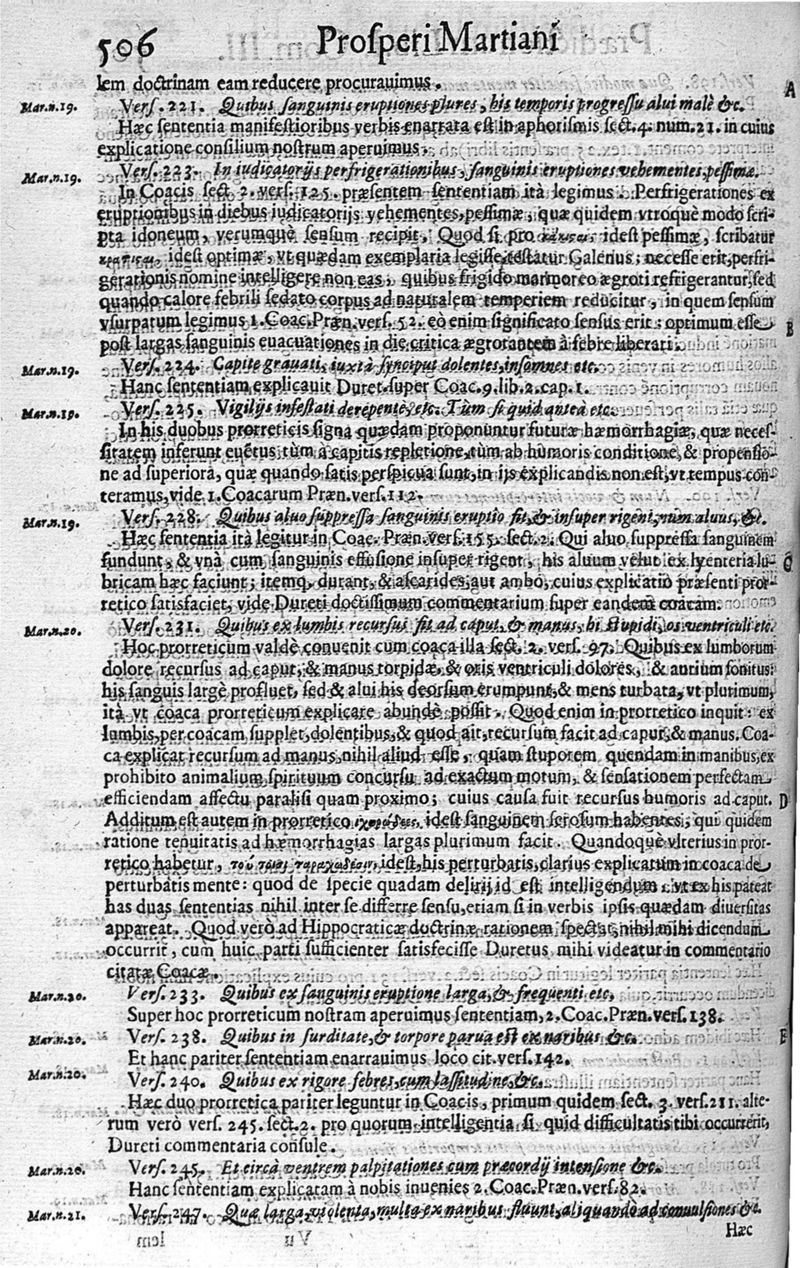 506 Proſperi Martiani
lem doctrinam eam reducere procurauimus.
Mar.n.19. Verſ. 221. Quibus ſanguinis eruptiones plures, his temporis progreſſu alui malè &c.
Hæc ſententia manifeſtioribus verbis enarrata eſt in aphoriſmis ſect. 4. num. 21. in cuius
explicatione conſilium noſtrum aperuimus.
Mar.n.19. Verſ. 223. In iudicatorijs perfrigerationibus, ſanguinis eruptiones vehementes, peſſimæ.
In Coacis ſect. 2. verſ. 125. præſentem ſententiam ità legimus: Perfrigerationes ex
eruptionibus in diebus iudicatorijs vehementes, peſſimæ, quæ quidem vtroquè modo ſcri-
pta idoneum, verumquè ſenſum recipit. Quod ſi pro idest peſſimæ, ſcribatur
idest optimæ, vt quædam exemplaria legiſſe teſtatur Galenus; neceſſe erit, perfri-
gerationis nomine intelligere non eas, quibus frigido marmoreo ægroti refrigerantur, ſed
quando calore febrili ſedato corpus ad naturalem temperiem reducitur, in quem ſenſum
vſurpatum legimus 1. Coac. Præn. verſ. 52. eò enim ſignificato ſenſus erit: optimum eſſe
poſt largas ſanguinis euacuationes in die critica ægrotantem à febre liberati.
Mar.n.19. Verſ. 224. Capite grauati, iuxtà ſynciput dolentes, inſomnes etc.
Hanc ſententiam explicauit Duret. ſuper Coac. 9. lib. 2. cap. 1.
Mar.n.19. Verſ. 225. Vigilijs infeſtati derepentè, etc. Tùm ſi quid anteà etc.
In his duobus prorreticis ſigna quædam proponuntur futuræ hæmorrhagiæ, quæ neceſ-
ſitatem inferunt euẽtus; tùm à capitis repletione, tùm ab humoris conditione, & propenſio-
ne ad ſuperiora, quæ quando ſatis perſpicua ſunt, in ijs explicandis non eſt, vt tempus con-
teramus, vide 1. Coacarum Præn. verſ. 112.
Mar.n.19. Verſ. 228. Quibus aluo ſuppreſſa ſanguinis eruptio fit, & inſuper rigent, nùm aluus, &c.
Hæc ſententia ità legitur in Coac. Præn. verſ. 155. ſect. 2. Qui aluo ſuppreſſa ſanguinem
fundunt, & vnà cum ſanguinis effuſione inſuper rigent, his aluum velut ex lyenteria lu-
bricam hæc faciunt; itemq. durant, & aſcarides, aut ambo, cuius explicatio præſenti pror-
retico ſatisfaciet, vide Dureti doctiſſimum commentarium ſuper eandem coacam.
Mar.n.20. Verſ. 231. Quibus ex lumbis recurſus fit ad caput, & manus, hi ſtupidi, os ventriculi etc.
Hoc prorreticum valdè conuenit cum coaca illa ſect. 2. verſ. 97. Quibus ex lumborum
dolore recurſus ad caput, & manus torpidæ, & oris ventriculi dolores, & aurium ſonitus;
his ſanguis largè profluet, ſed & alui his deorſum erumpunt, & mens turbata, vt plurimum,
ità vt coaca prorreticum explicare abundè poſſit. Quod enim in prorretico inquit: ex
lumbis, per coacam ſupplet, dolentibus, & quod ait, recurſum facit ad caput, & manus. Coa-
ca explicat recurſum ad manus, nihil aliud eſſe, quam ſtuporem quendam in manibus, ex
prohibito animalium ſpirituum concurſu ad exactum motum, & ſenſationem perfectam
efficiendam affectu paraliſi quam proximo; cuius cauſa fuit recurſus humoris ad caput.
Additum eſt autem in prorretico idest ſanguinem ſeroſum habentes; qui quidem
ratione tenuitatis ad hæmorrhagias largas plurimum facit. Quandoquè vlterius in pror-
retico habetur, idest, his perturbatis, clarius explicatum in coaca de
perturbatis mente: quod de ſpecie quadam delirij id eſt intelligendum: vt ex his pateat
has duas ſententias nihil inter ſe differre ſenſu, etiam ſi in verbis ipſis quædam diuerſitas
appareat. Quod verò ad Hippocraticæ doctrinæ rationem ſpectat, nihil mihi dicendum
occurrit, cum huic parti ſufficienter ſatisfeciſſe Duretus mihi videatur in commentario
citatæ Coacæ.
Mar.n.20. Verſ. 233. Quibus ex ſanguinis eruptione larga, & frequenti etc.
Super hoc prorreticum noſtram aperuimus ſententiam, 2. Coac. Præn. verſ. 138.
Mar.n.20. Verſ. 238. Quibus in ſurditate, & torpore parua eſt ex naribus &c.
Et hanc pariter ſententiam enarrauimus loco cit. verſ. 142.
Mar.n.20. Verſ. 240. Quibus ex rigore febres, cum laſſitudine, &c.
Hæc duo prorretica pariter leguntur in Coacis, primum quidem ſect. 3. verſ. 211. alte-
rum verò verſ. 245. ſect. 2. pro quorum intelligentia ſi quid difficultatis tibi occurrerit,
Dureti commentaria conſule.
Mar.n.20. Verſ. 245. Et circà ventrem palpitationes cum præcordij intenſione &c.
Hanc ſententiam explicatam à nobis inuenies 2. Coac. Præn. verſ. 82.
Mar.n.21. Verſ. 247. Quæ larga, violenta, multa ex naribus fluunt, aliquando ad conuulſiones &c.
Hæc
A
B
C
D
E